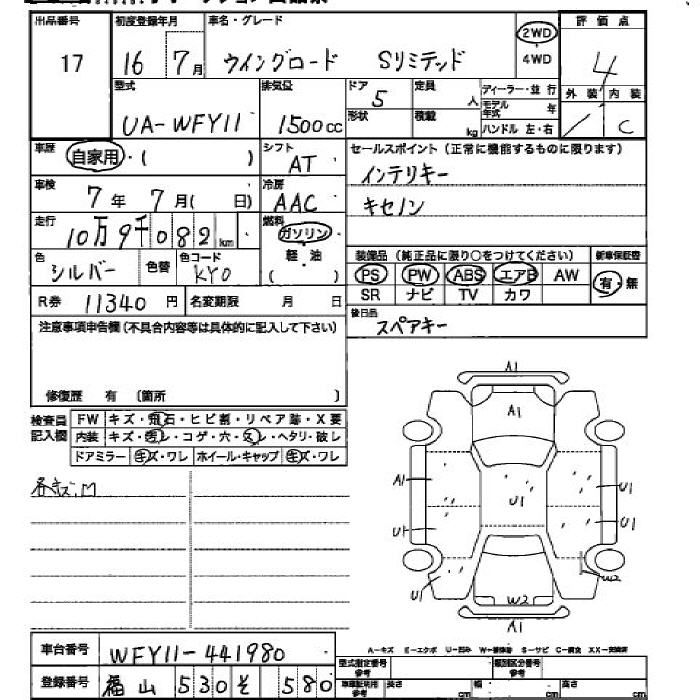 出品番号 初度登録年月 車名・グレード 2WD 評価点
17 16 7月 ウイングロード Sリミテッド 4WD 4
型式 排気量 ドア 5 定員 人 ディーラー・並 行 外装 内装
UA-WFY11 1500cc 形状 積載 kg モデル年式 年 C
ハンドル 左・右
車歴 自家用・( ) シフト AT セールスポイント (正常に機能するものに限ります)
インテリキー
車検 7年 7月( 日) 冷房 AAC キセノン
走行 10万9千082km 燃料 ガソリン
軽・油
( )
装備品 (純正品に限り○をつけてください) 新車保証書
色 シルバー 色替 色コード KY0 PS PW ABS エアB AW 有・無
SR ナビ TV カワ
R券 11340円 名変期限 月 日 後日品
スペアキー
注意事項申告欄 (不具合内容等は具体的に記入して下さい)
修復歴 有 〔箇所 〕
検査員 FW キズ・飛石・ヒビ割・リペア跡・X要
記入欄 内装 キズ・汚レ・コゲ・穴・スレ・ヘタリ・破レ
ドアミラー キズ・ワレ ホイール・キャップ キズ・ワレ
各キズ.M
A1
A1
A1 U1 U1
U1 U1
U1 W2
W2
A1
A-キズ E-エクボ U-凹み S-サビ
車台番号 WFY11-441980
登録番号 福山 530 そ 580
型式指定番号 参考 類別区分番号 参考
長さ cm 幅 cm 高さ cm